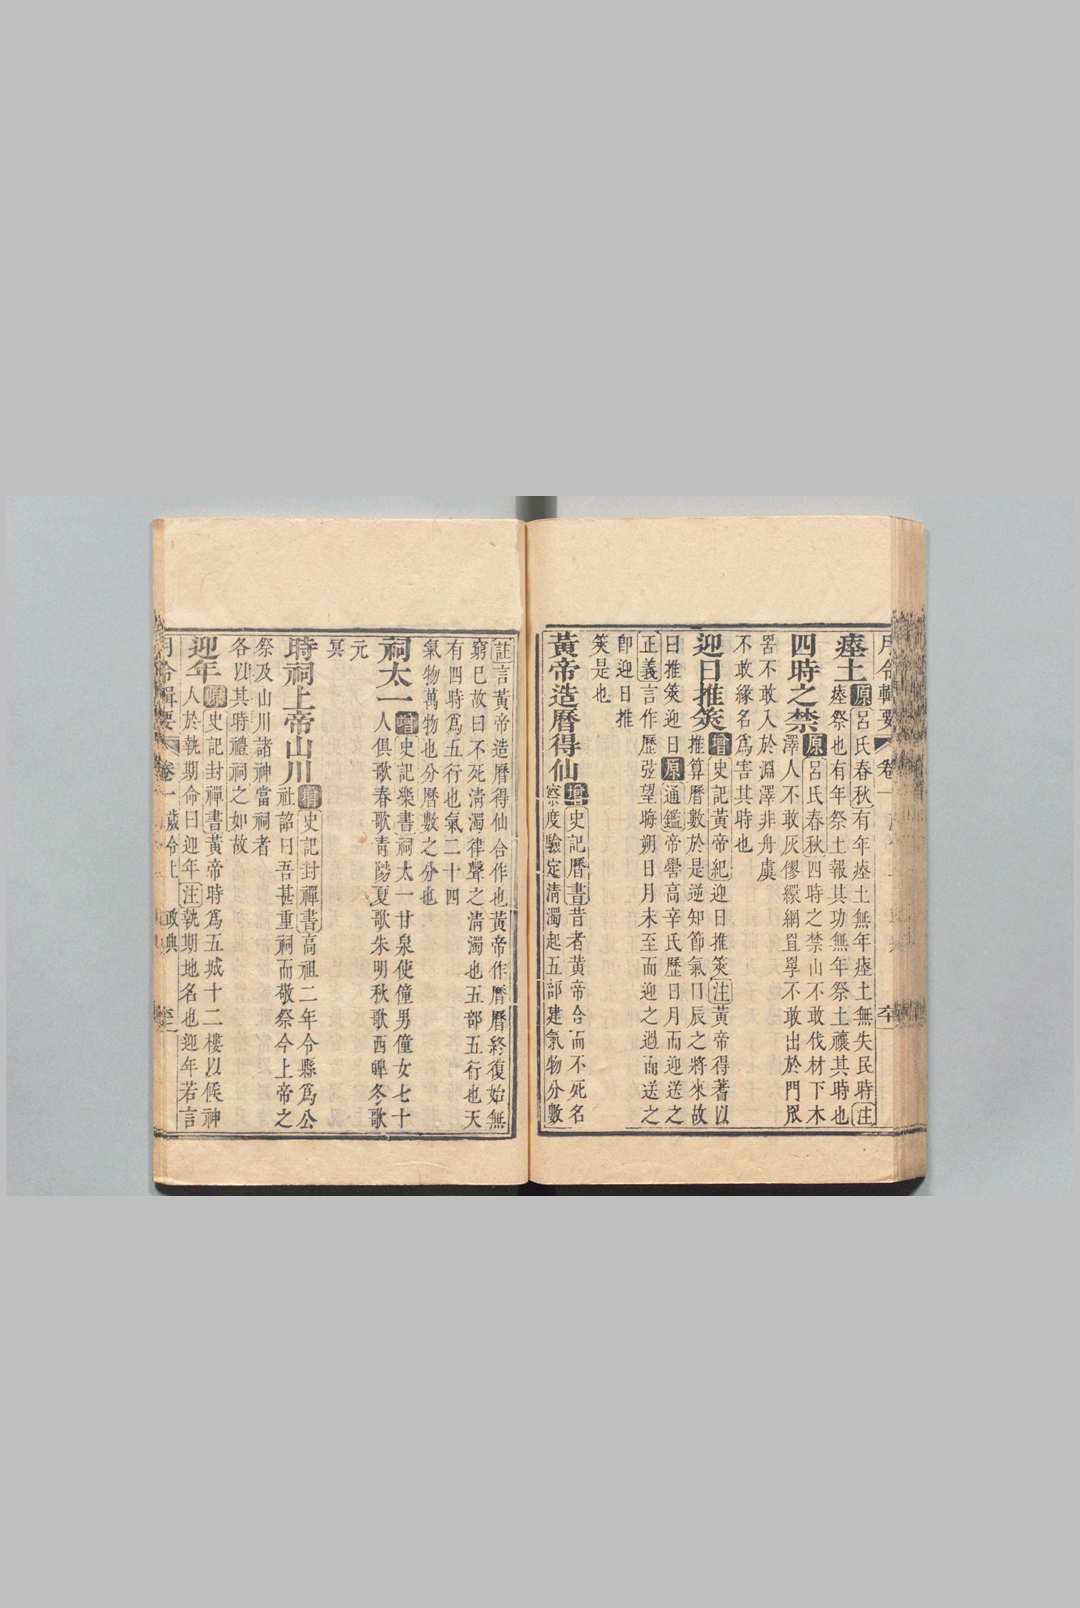 月令輯要 卷一
瘞土 原呂氏春秋有年瘞土無年瘞土無失民時注
瘞祭也有年祭土報其功無年祭土禳其時也
四時之禁 原呂氏春秋四時之禁山不敢伐材下木
澤人不敢灰僇繯網罝罦不敢出於門罛
罟不敢入於淵澤非舟虞
不敢緣名爲害其時也
迎日推筴 增史記黃帝紀迎日推筴注黃帝得蓍以
推算曆數於是逆知節氣日辰之將來故
曰推筴迎日原通鑑帝嚳高辛氏歷日月而迎送之
正義言作歷弦望晦朔日月未至而迎之過而送之
卽迎日推
筴是也
黃帝造曆得仙 增史記曆書昔者黃帝合而不死名
察度驗定淸濁起五部建氣物分數
註言黃帝造曆得仙合作也黃帝作曆曆終復始無
窮已故曰不死淸濁律聲之淸濁也五部五行也天
有四時爲五行也氣二十四
氣物萬物也分曆數之分也
祠太一 增史記樂書祠太一甘泉使僮男僮女七十
人俱歌春歌靑陽夏歌朱明秋歌西皞冬歌
元
冥
時祠上帝山川 增史記封禪書高祖二年令縣爲公
社詔曰吾甚重祠而敬祭今上帝之
祭及山川諸神當祠者
各以其時禮祠之如故
迎年 原史記封禪書黃帝時爲五城十二樓以候神
人於執期命曰迎年注執期地名也迎年若言
月令輯要 卷一歲令上 政典